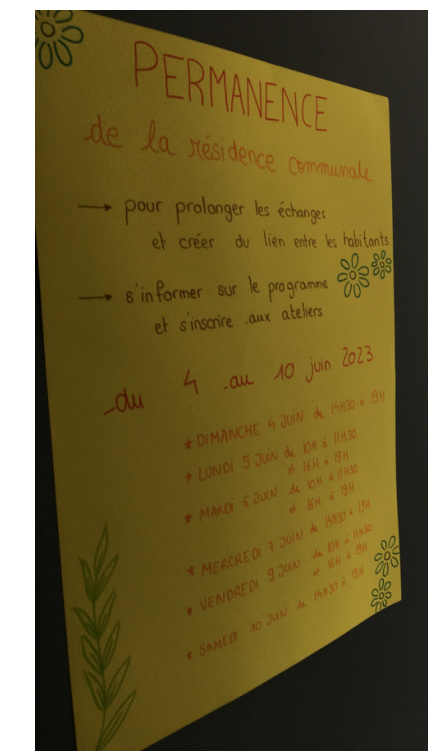 PERMANENCE
de la résidence communale
→ pour prolonger les échanges
et créer du lien entre les habitants
→ s'informer sur le programme
et s'inscrire aux ateliers
du 4 au 10 juin 2023
* DIMANCHE 4 JUIN de 14H30 à 19H
* LUNDI 5 JUIN de 10H à 11H30
et 16H à 19H
* MARDI 6 JUIN de 10H à 11H30
et 16H à 19H
* MERCREDI 7 JUIN de 14H30 à 19H
* VENDREDI 9 JUIN de 10H à 11H30
et 16H à 19H
* SAMEDI 10 JUIN de 14H30 à 19H